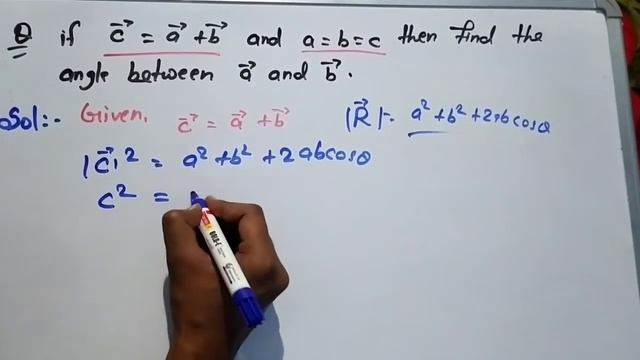 Q if c⃗ = a⃗ + b⃗ and a = b = c then find the
angle between a⃗ and b⃗.
Sol:- Given, c⃗ = a⃗ + b⃗ |R⃗|= a² + b² + 2ab cosθ
|c⃗|² = a² + b² + 2ab cosθ
c² =